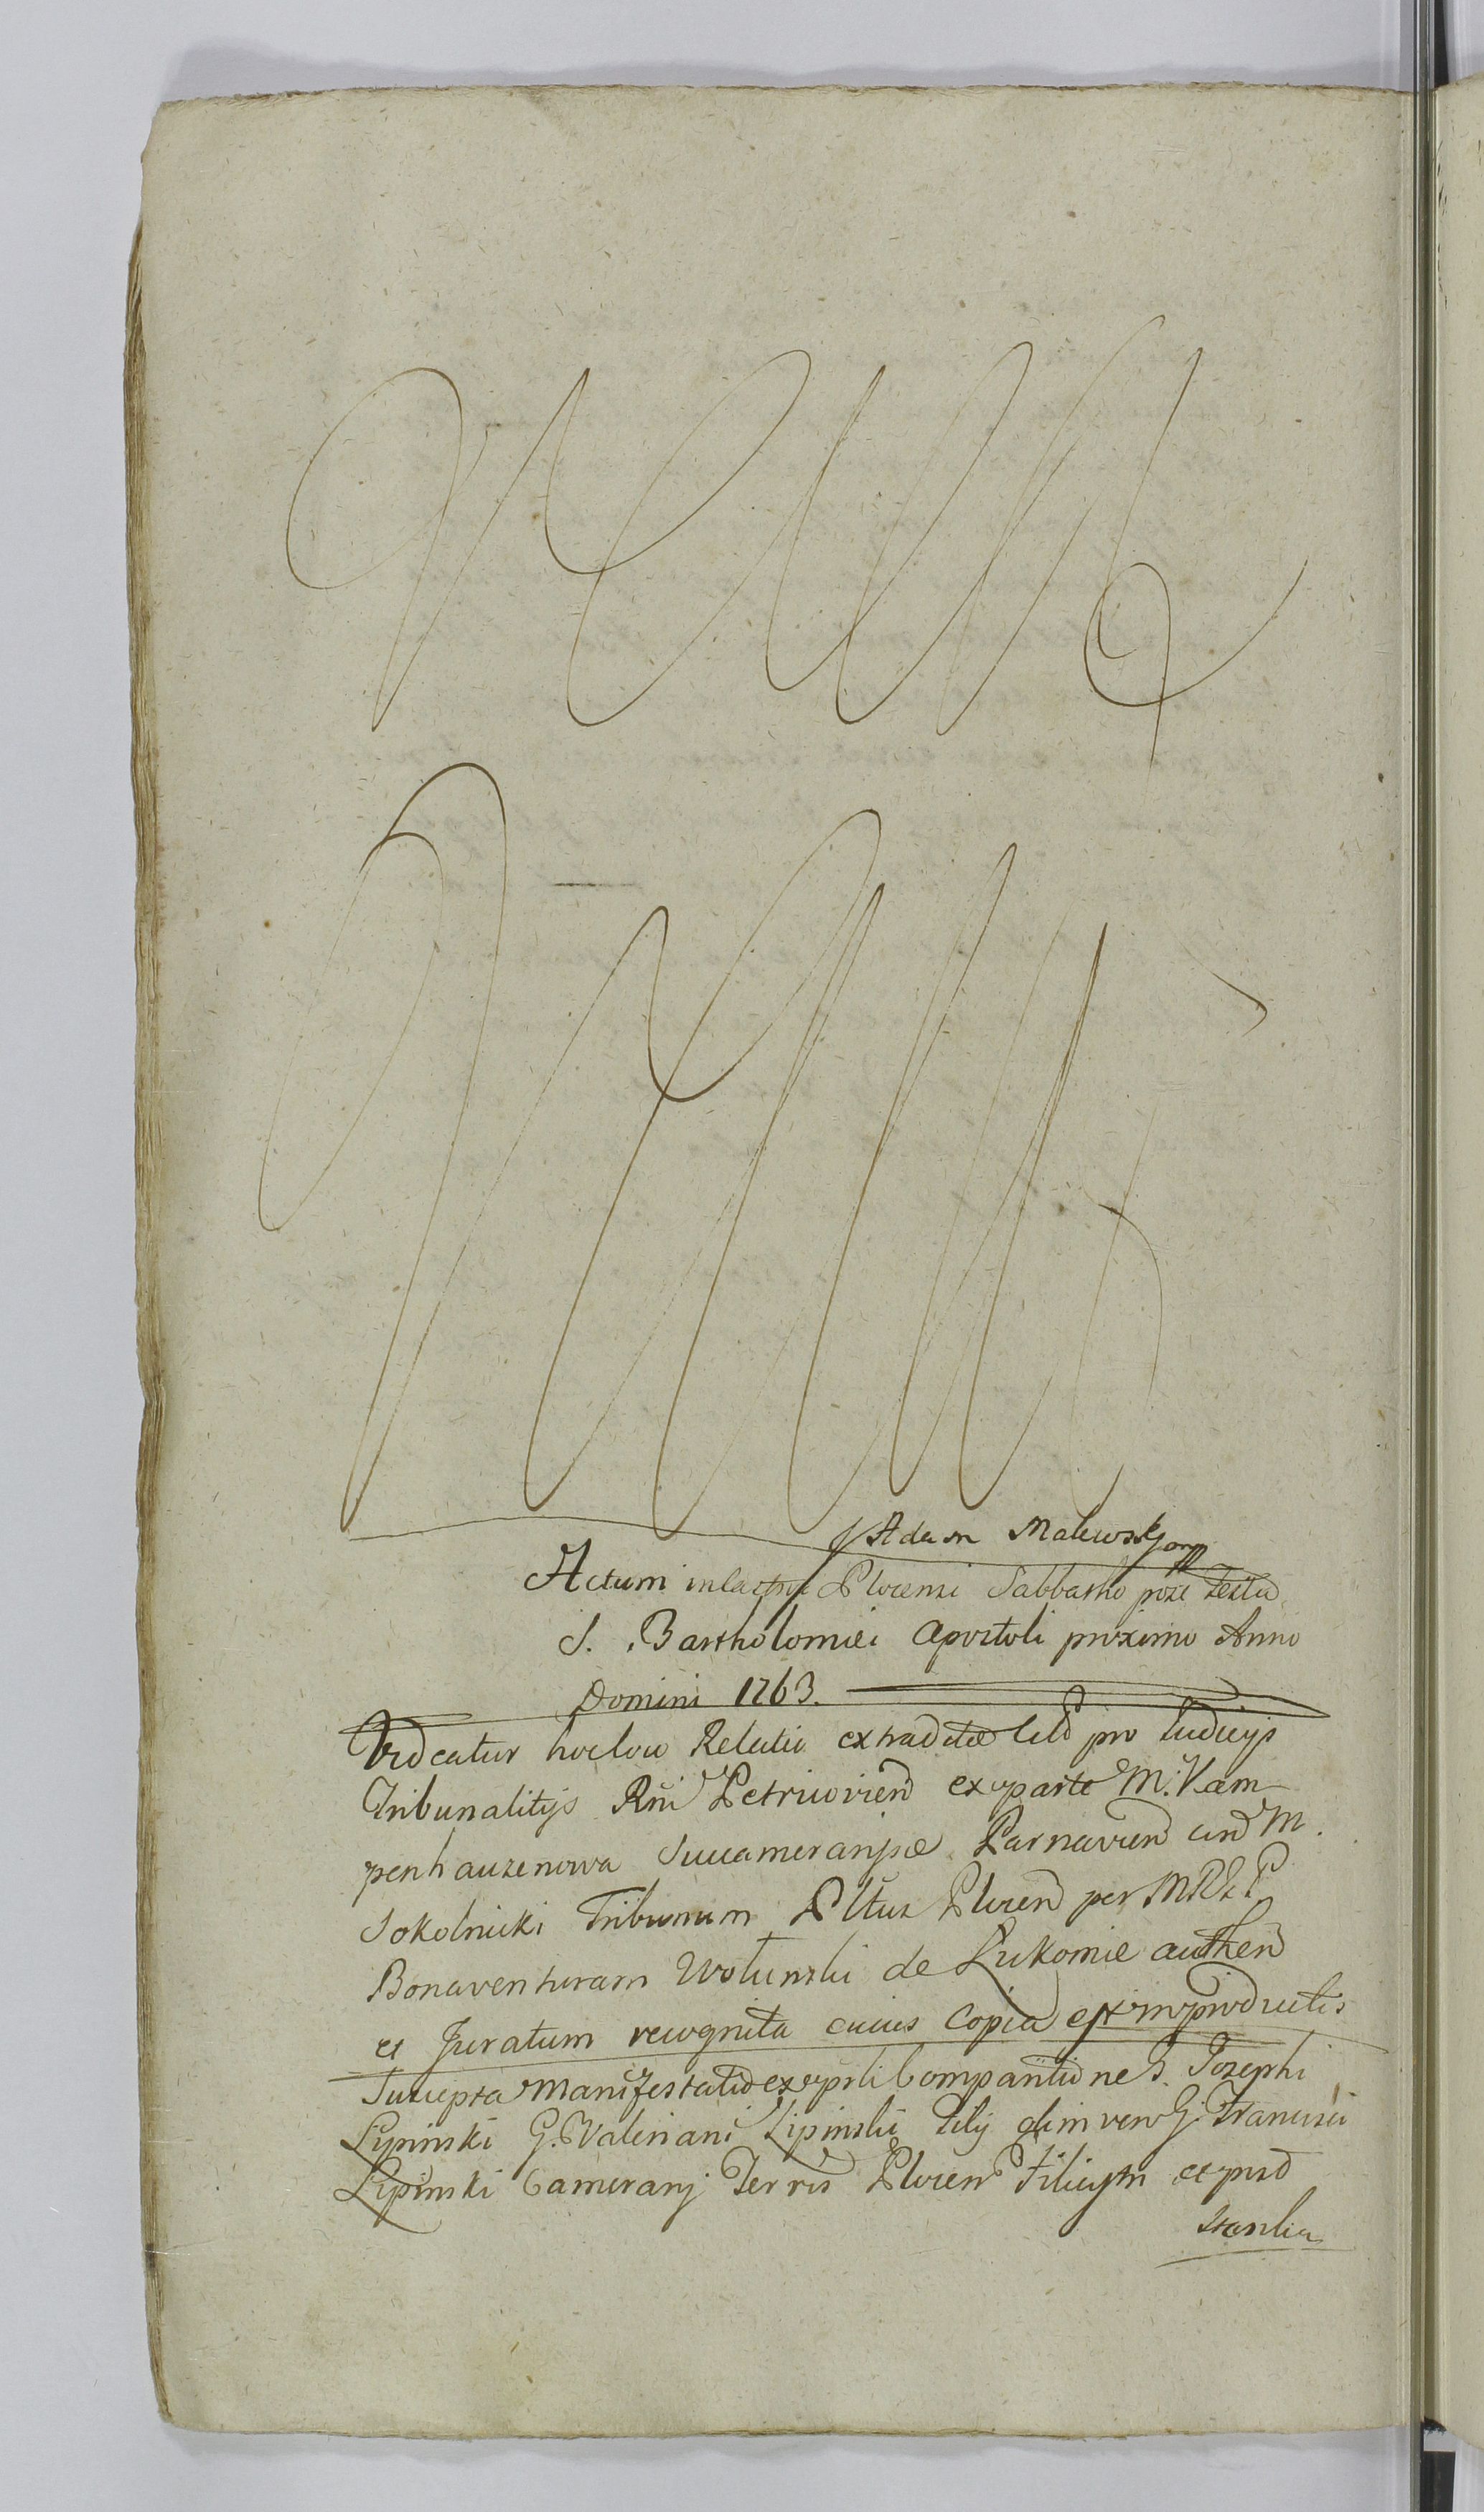 Adam Malewski mpp
Actum in Castro Plocensi Sabbatho post Festu
S. Bartholomei Apostoli proximo Anno
Domini 1763.
Videatur hocloco Relatio extraditæ Citt pro Iudicijs
Tribunalitijs Rñi Petricovien ex parte M. Kam
penhauzenowa Succameranjæ Parnavien cum M.
Sokolnicki Tribunum Plocen per
Bonaventuram Wolinski de Łukomie authen
et Juratum recognita cuius Copia est in productis
Suscepta Manifestatio ex Compantione G. Josephi
Lipinski G. Valeriani Lipinski Filij olim vero G. Francisci
Lipinski Cameranj Terris Plocen Filij